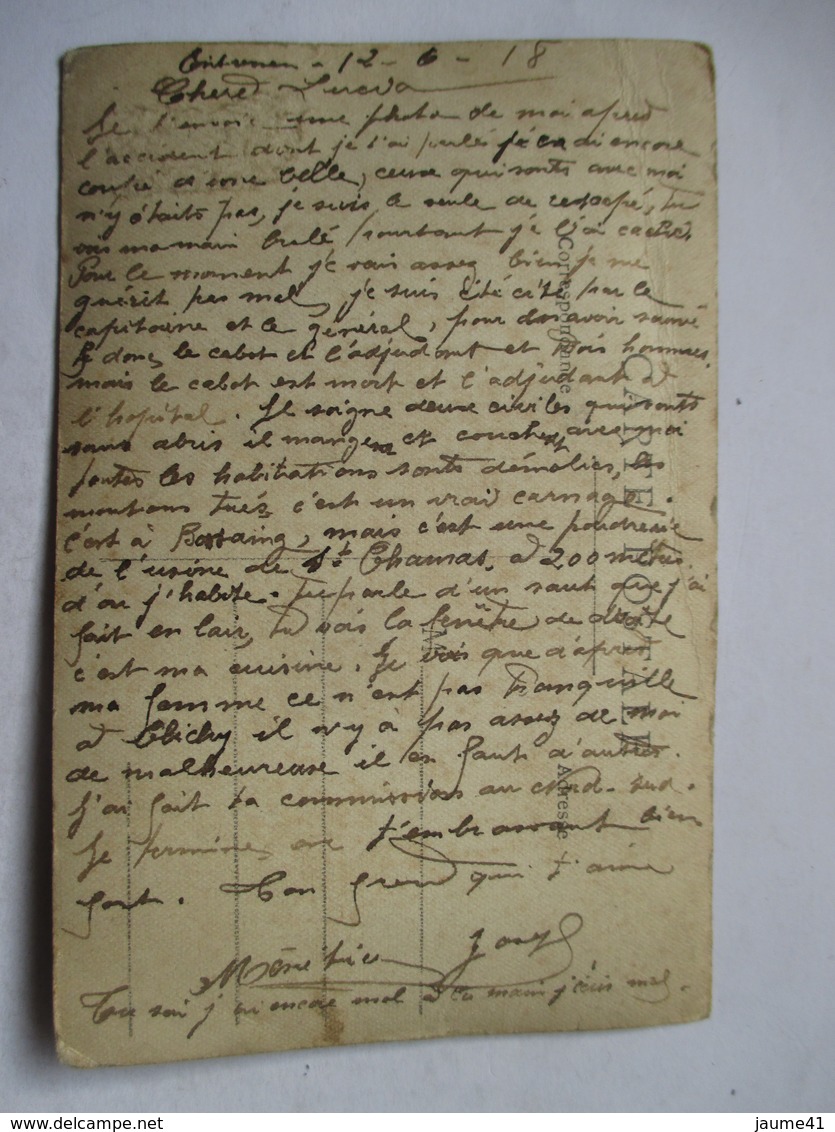 12 - 6 - 18
Cherd Lucia
Je t'envoi une photo de moi apred
l'accident dont je t'ai parlé
une belle, ceuse qui sonts avec moi
n'y étaits pas, je suis le seule de rescapé, tu
vois ma main brulé, pourtant je l'ai caché.
Pour le moment je vais assez bien je me
guérit pas mal, je suis été cité par le
capitaine et le général, pour avoir sauvé
donc le cabot et l'adjudant et trois hommes,
mais le cabot est mort et l'adjudant a
l'hopital. Je soigne deuse civiles qui sonts
sans abris il mangent et couchent avec moi
toutes les habitations sonts démolies, les
moutons tués c'est un vrai carnage.
c'est à Bassaing, mais c'est une poudrerie
de l'usine de St Chamas, a 200 mètres
d'ou j'habite. Tu parle d'un saut que j'ai
fait en lair, tu vois la fenêtre de droite
c'est ma cuisine. Je vois que d'après
ma femme ce n'est pas tranquille
a Clichy il n'y à pas assez de moi
de malheureuse il en faut d'autres.
J'ai fait ta commission au Nord-Sud.
Je termine en t'embrassant bien
fort. Ton qui t'aime
Joseph
Tu sai j'ai encore mal a la main j'écris mal.
CARTE POSTALE
Correspondance
Adresse
delcampe.net
jaume41